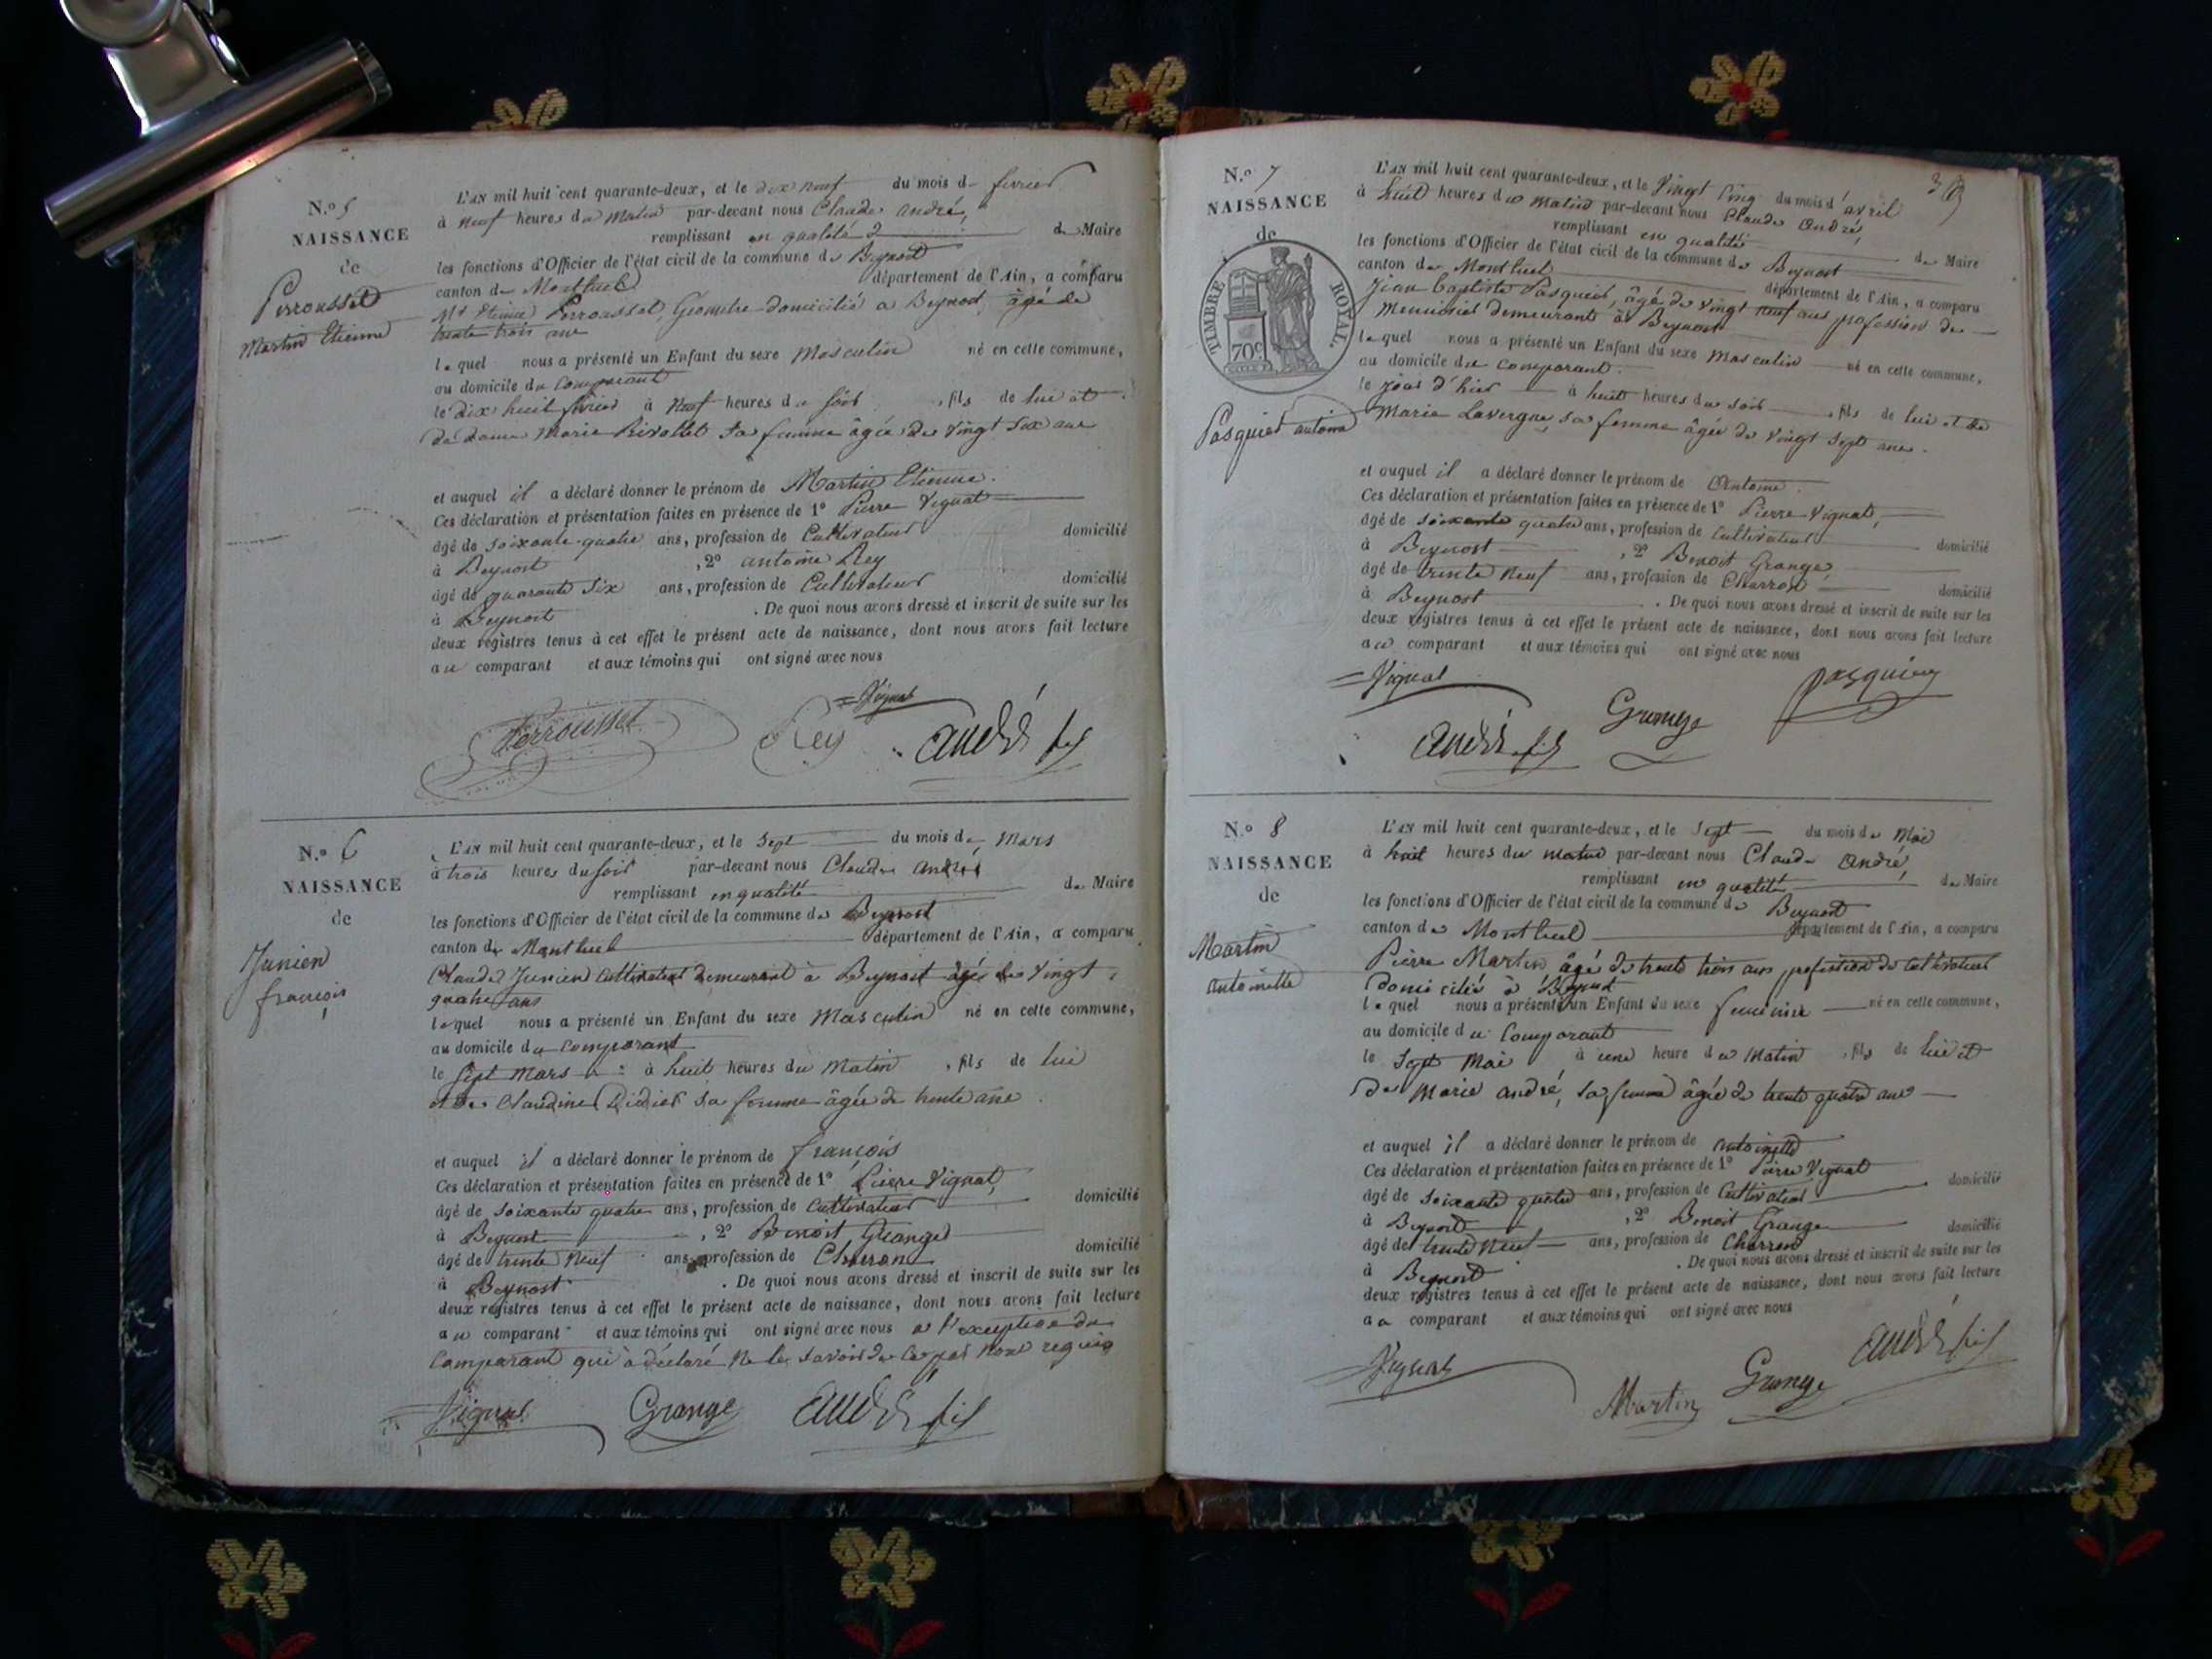 N.º 5
NAISSANCE
de
Perrousset
Martin Etienne
L'AN mil huit cent quarante-deux, et le dix neuf du mois de fevrier
à neuf heures du matin par-devant nous Claude André,
remplissant en qualité de Maire
les fonctions d'Officier de l'état civil de la commune de Beynost
canton de Montluel département de l'Ain, a comparu
Mr Etienne Perrousset, Géomètre domicilié a Beynost, âgé de
trente trois ans
lequel nous a présenté un Enfant du sexe Masculin né en cette commune,
au domicile du comparant
le dix huit fevrier à neuf heures du soir, fils de lui et
de dame Marie Rivollet sa femme âgée de vingt six ans
et auquel il a déclaré donner le prénom de Martin Etienne.
Ces déclaration et présentation faites en présence de 1º Pierre Vignat
âgé de soixante-quatre ans, profession de Cultivateur domicilié
à Beynost, 2º antoine Rey
âgé de quarante six ans, profession de Cultivateur domicilié
à Beynost. De quoi nous avons dressé et inscrit de suite sur les
deux registres tenus à cet effet le présent acte de naissance, dont nous avons fait lecture
au comparant et aux témoins qui ont signé avec nous
Vignat
Perrousset Rey André fils
N.º 6
NAISSANCE
de
Junien
françois
L'AN mil huit cent quarante-deux, et le sept du mois de Mars
à trois heures du soir par-devant nous Claude André
remplissant en qualité de Maire
les fonctions d'Officier de l'état civil de la commune de Beynost
canton de Montluel département de l'Ain, a comparu
Claude Junien Cultivateur demeurant à Beynost âgé de vingt
quatre ans
lequel nous a présenté un Enfant du sexe Masculin né en cette commune,
au domicile du comparant
le sept mars à huit heures du matin, fils de lui
et de Claudine Didier sa femme âgée de trente ans
et auquel il a déclaré donner le prénom de françois
Ces déclaration et présentation faites en présence de 1º Pierre Vignat,
âgé de soixante quatre ans, profession de Cultivateur domicilié
à Beynost, 2º Benoit Grange
âgé de trente neuf ans, profession de Charron domicilié
à Beynost. De quoi nous avons dressé et inscrit de suite sur les
deux registres tenus à cet effet le présent acte de naissance, dont nous avons fait lecture
au comparant et aux témoins qui ont signé avec nous a l'exception du
Comparant qui a déclaré ne le savoir de ce requis
Vignat Grange André fils
N.º 7
NAISSANCE
de
TIMBRE ROYAL.
70c
Pasquier antoine
L'AN mil huit cent quarante-deux, et le vingt cinq du mois d'avril
à huit heures du matin par-devant nous Claude André,
remplissant en qualité de Maire
les fonctions d'Officier de l'état civil de la commune de Beynost
canton de Montluel département de l'Ain, a comparu
Jean Baptiste Pasquier, âgé de vingt neuf ans profession de
Menuisier demeurant à Beynost
lequel nous a présenté un Enfant du sexe Masculin né en cette commune,
au domicile du comparant.
le jour d'hier à huit heures du soir, fils de lui et de
Marie Lavergne, sa femme âgée de vingt sept ans.
et auquel il a déclaré donner le prénom de Antoine.
Ces déclaration et présentation faites en présence de 1º Pierre Vignat,
âgé de soixante quatre ans, profession de Cultivateur domicilié
à Beynost, 2º Benoit Grange
âgé de trente neuf ans, profession de Charron domicilié
à Beynost. De quoi nous avons dressé et inscrit de suite sur les
deux registres tenus à cet effet le présent acte de naissance, dont nous avons fait lecture
au comparant et aux témoins qui ont signé avec nous
Vignat pasquier
André fils Grange
N.º 8
NAISSANCE
de
Martin
antoinette
L'AN mil huit cent quarante-deux, et le Sept du mois de Mai
à huit heures du matin par-devant nous Claude André,
remplissant en qualité de Maire
les fonctions d'Officier de l'état civil de la commune de Beynost
canton de Montluel département de l'Ain, a comparu
Pierre Martin âgé de trente trois ans profession de Cultivateur
domicilié à Beynost
lequel nous a présenté un Enfant du sexe feminin né en cette commune,
au domicile du Comparant
le sept Mai à une heure du Matin, fils de lui et
de Marie André, sa femme âgée de trente quatre ans
et auquel il a déclaré donner le prénom de antoinette
Ces déclaration et présentation faites en présence de 1º Pierre Vignat
âgé de soixante quatre ans, profession de Cultivateur domicilié
à Beynost, 2º Benoit Grange
âgé de trente neuf ans, profession de Charron domicilié
à Beynost. De quoi nous avons dressé et inscrit de suite sur les
deux registres tenus à cet effet le présent acte de naissance, dont nous avons fait lecture
au comparant et aux témoins qui ont signé avec nous
Vignat Martin Grange André fils